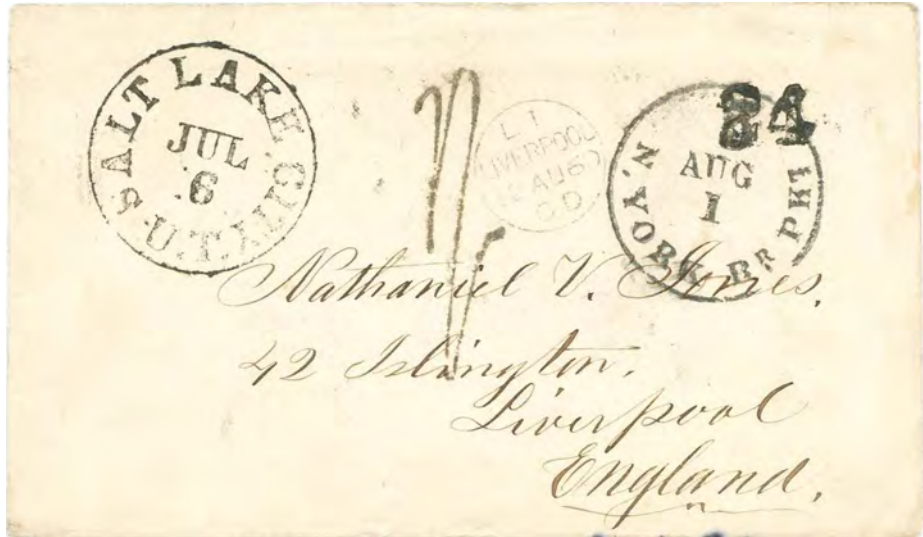 SALT LAKE CITY. U.T.
JUL
6
LIVERPOOL
AU60
24
N. YORK BR PKT
AUG
1
Nathaniel V. Jones.
42 Islington.
Liverpool
England.